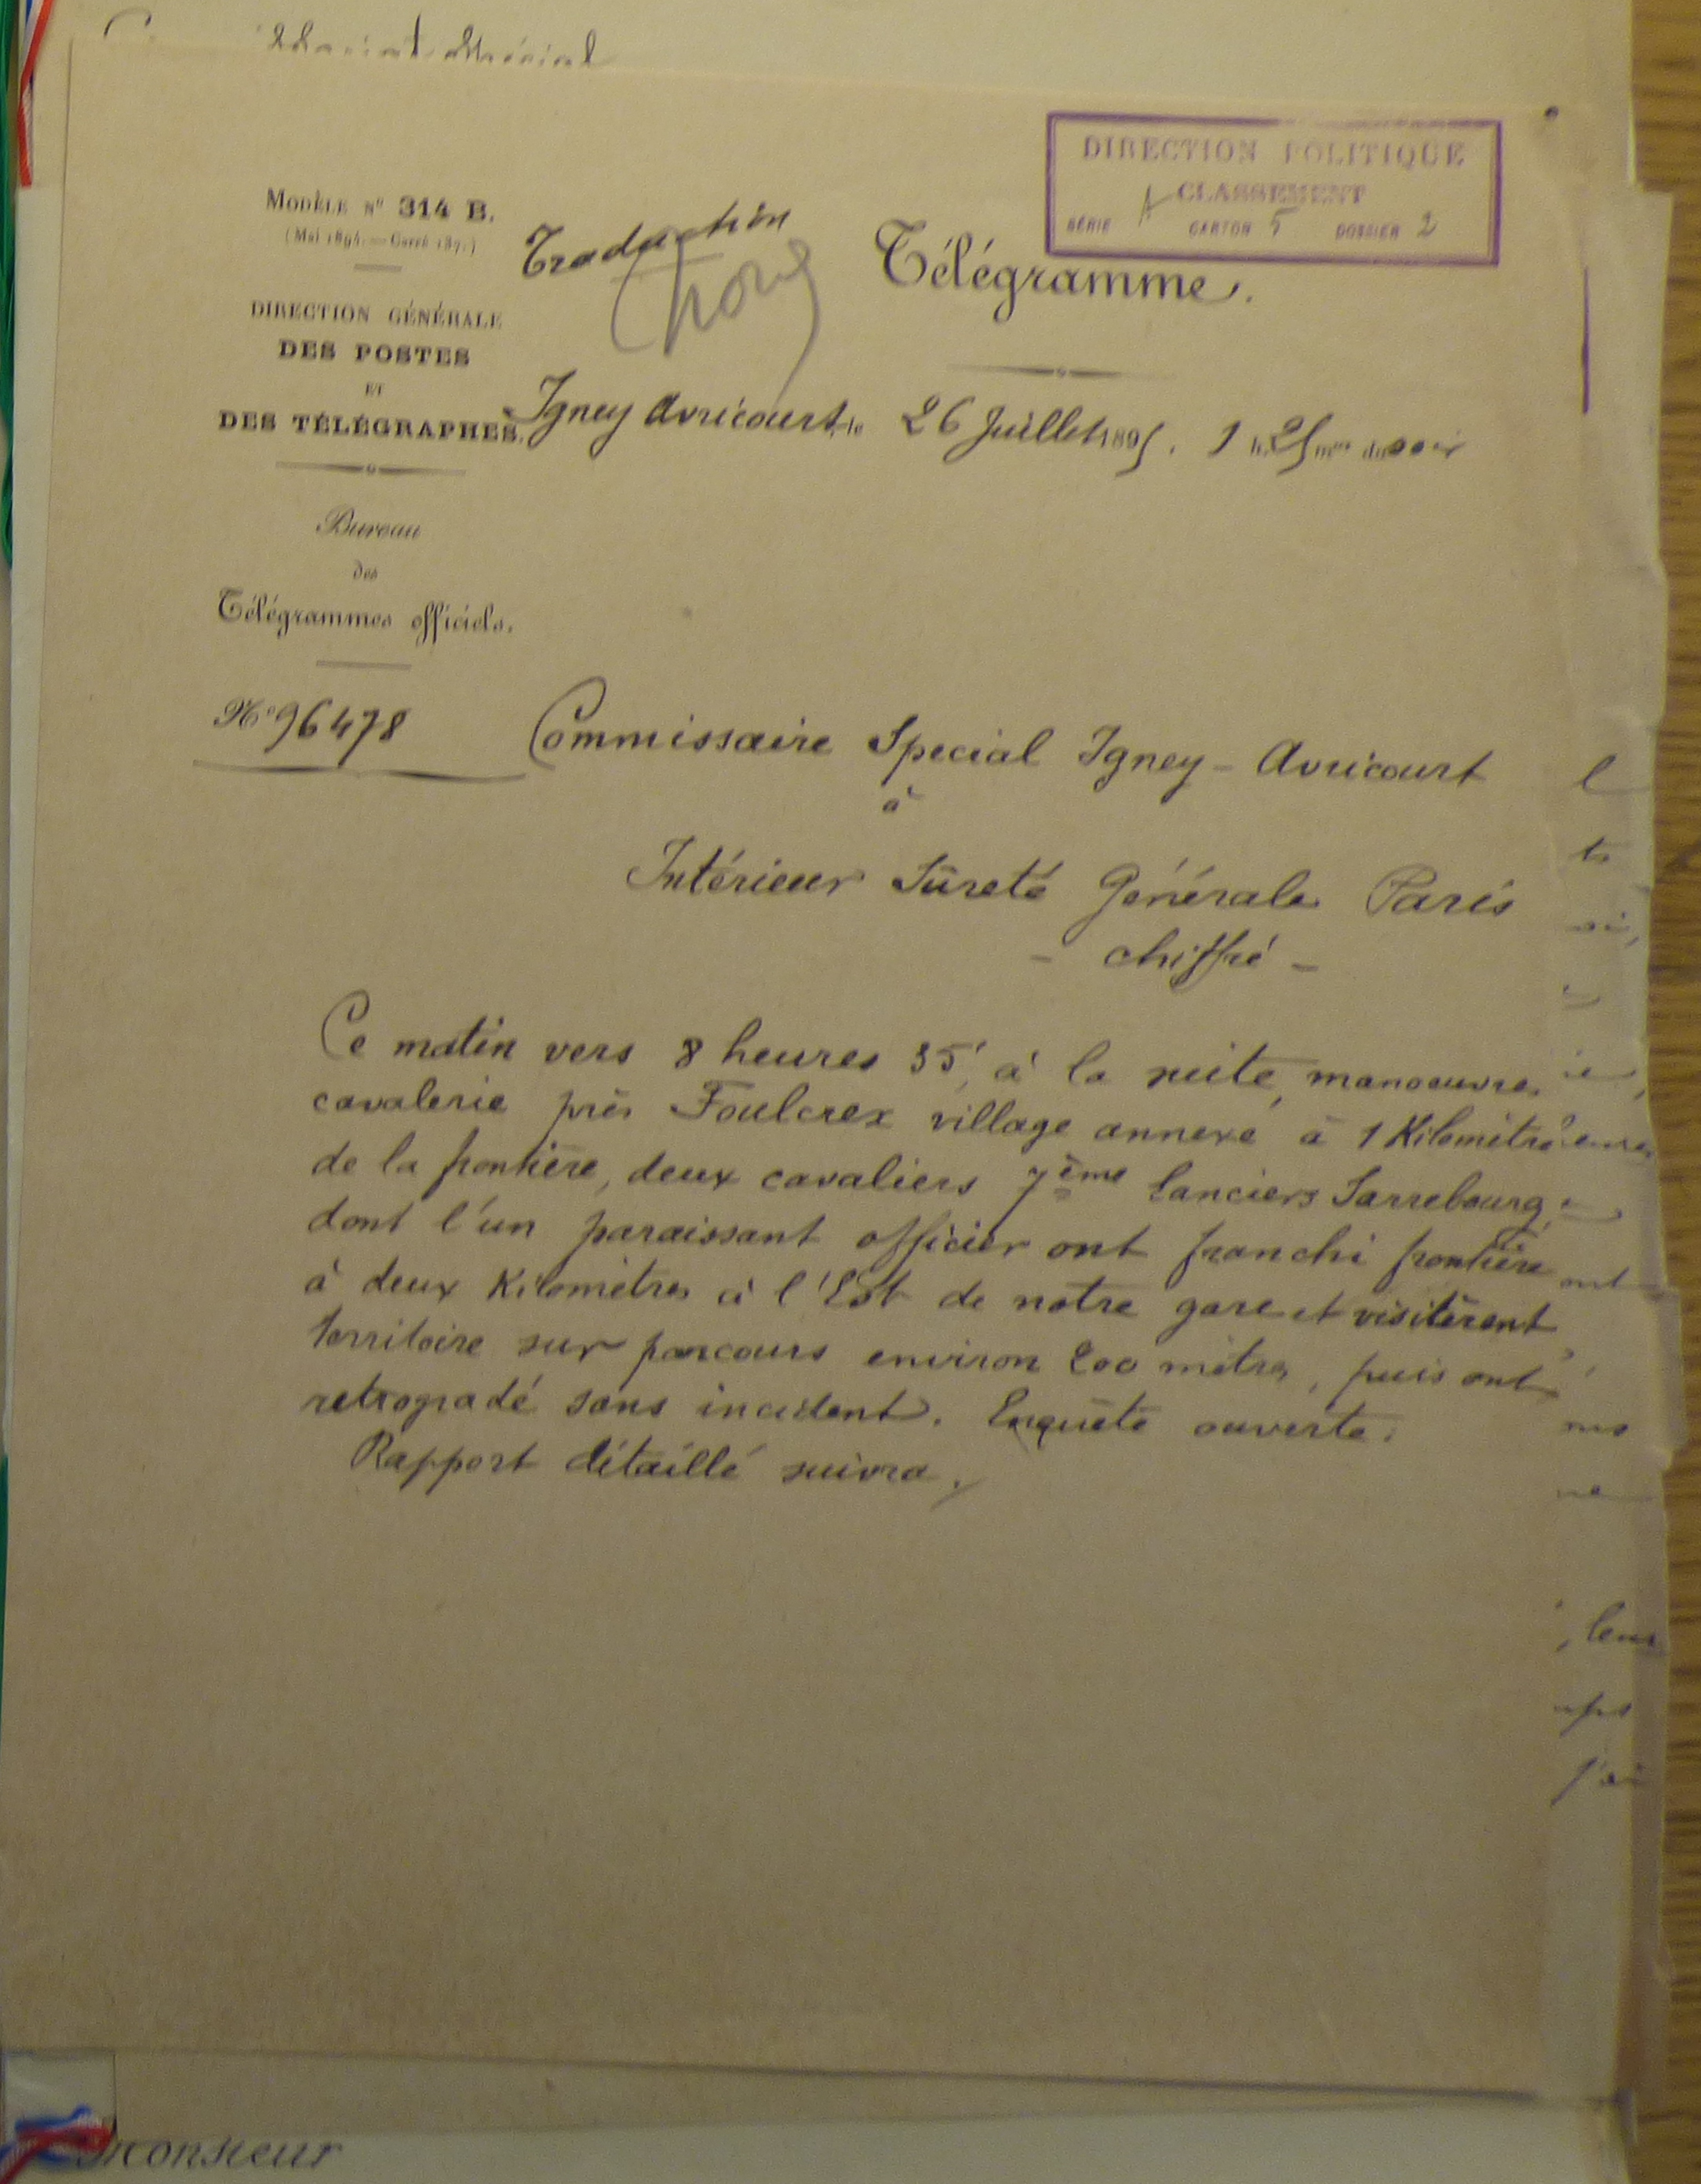 DIRECTION POLITIQUE
CLASSEMENT
SÉRIE A CARTON 5 DOSSIER 2
MODÈLE Nº 314 B.
Traduction
Télégramme.
DIRECTION GÉNÉRALE
DES POSTES
ET
DES TÉLÉGRAPHES.
Igney Avricourt, le 26 Juillet 1895. 1 h. 25 mes du soir
Bureau
des
Télégrammes officiels.
Nº 96478
Commissaire Special Igney-Avricourt
à
Intérieur Sûreté Générale Paris
- chiffré -
Ce matin vers 8 heures 35, à la suite, manoeuvres
cavalerie près Foulcrex village annexé à 1 Kilomètre
de la frontière, deux cavaliers 7ème lanciers Sarrebourg,
dont l'un paraissant officier ont franchi frontière
à deux Kilomètres à l'Est de notre gare et visitèrent
territoire sur parcours environ 200 mètres, puis ont
retrogradé sans incident. Enquête ouverte.
Rapport détaillé suivra.
ont
leur
Monsieur